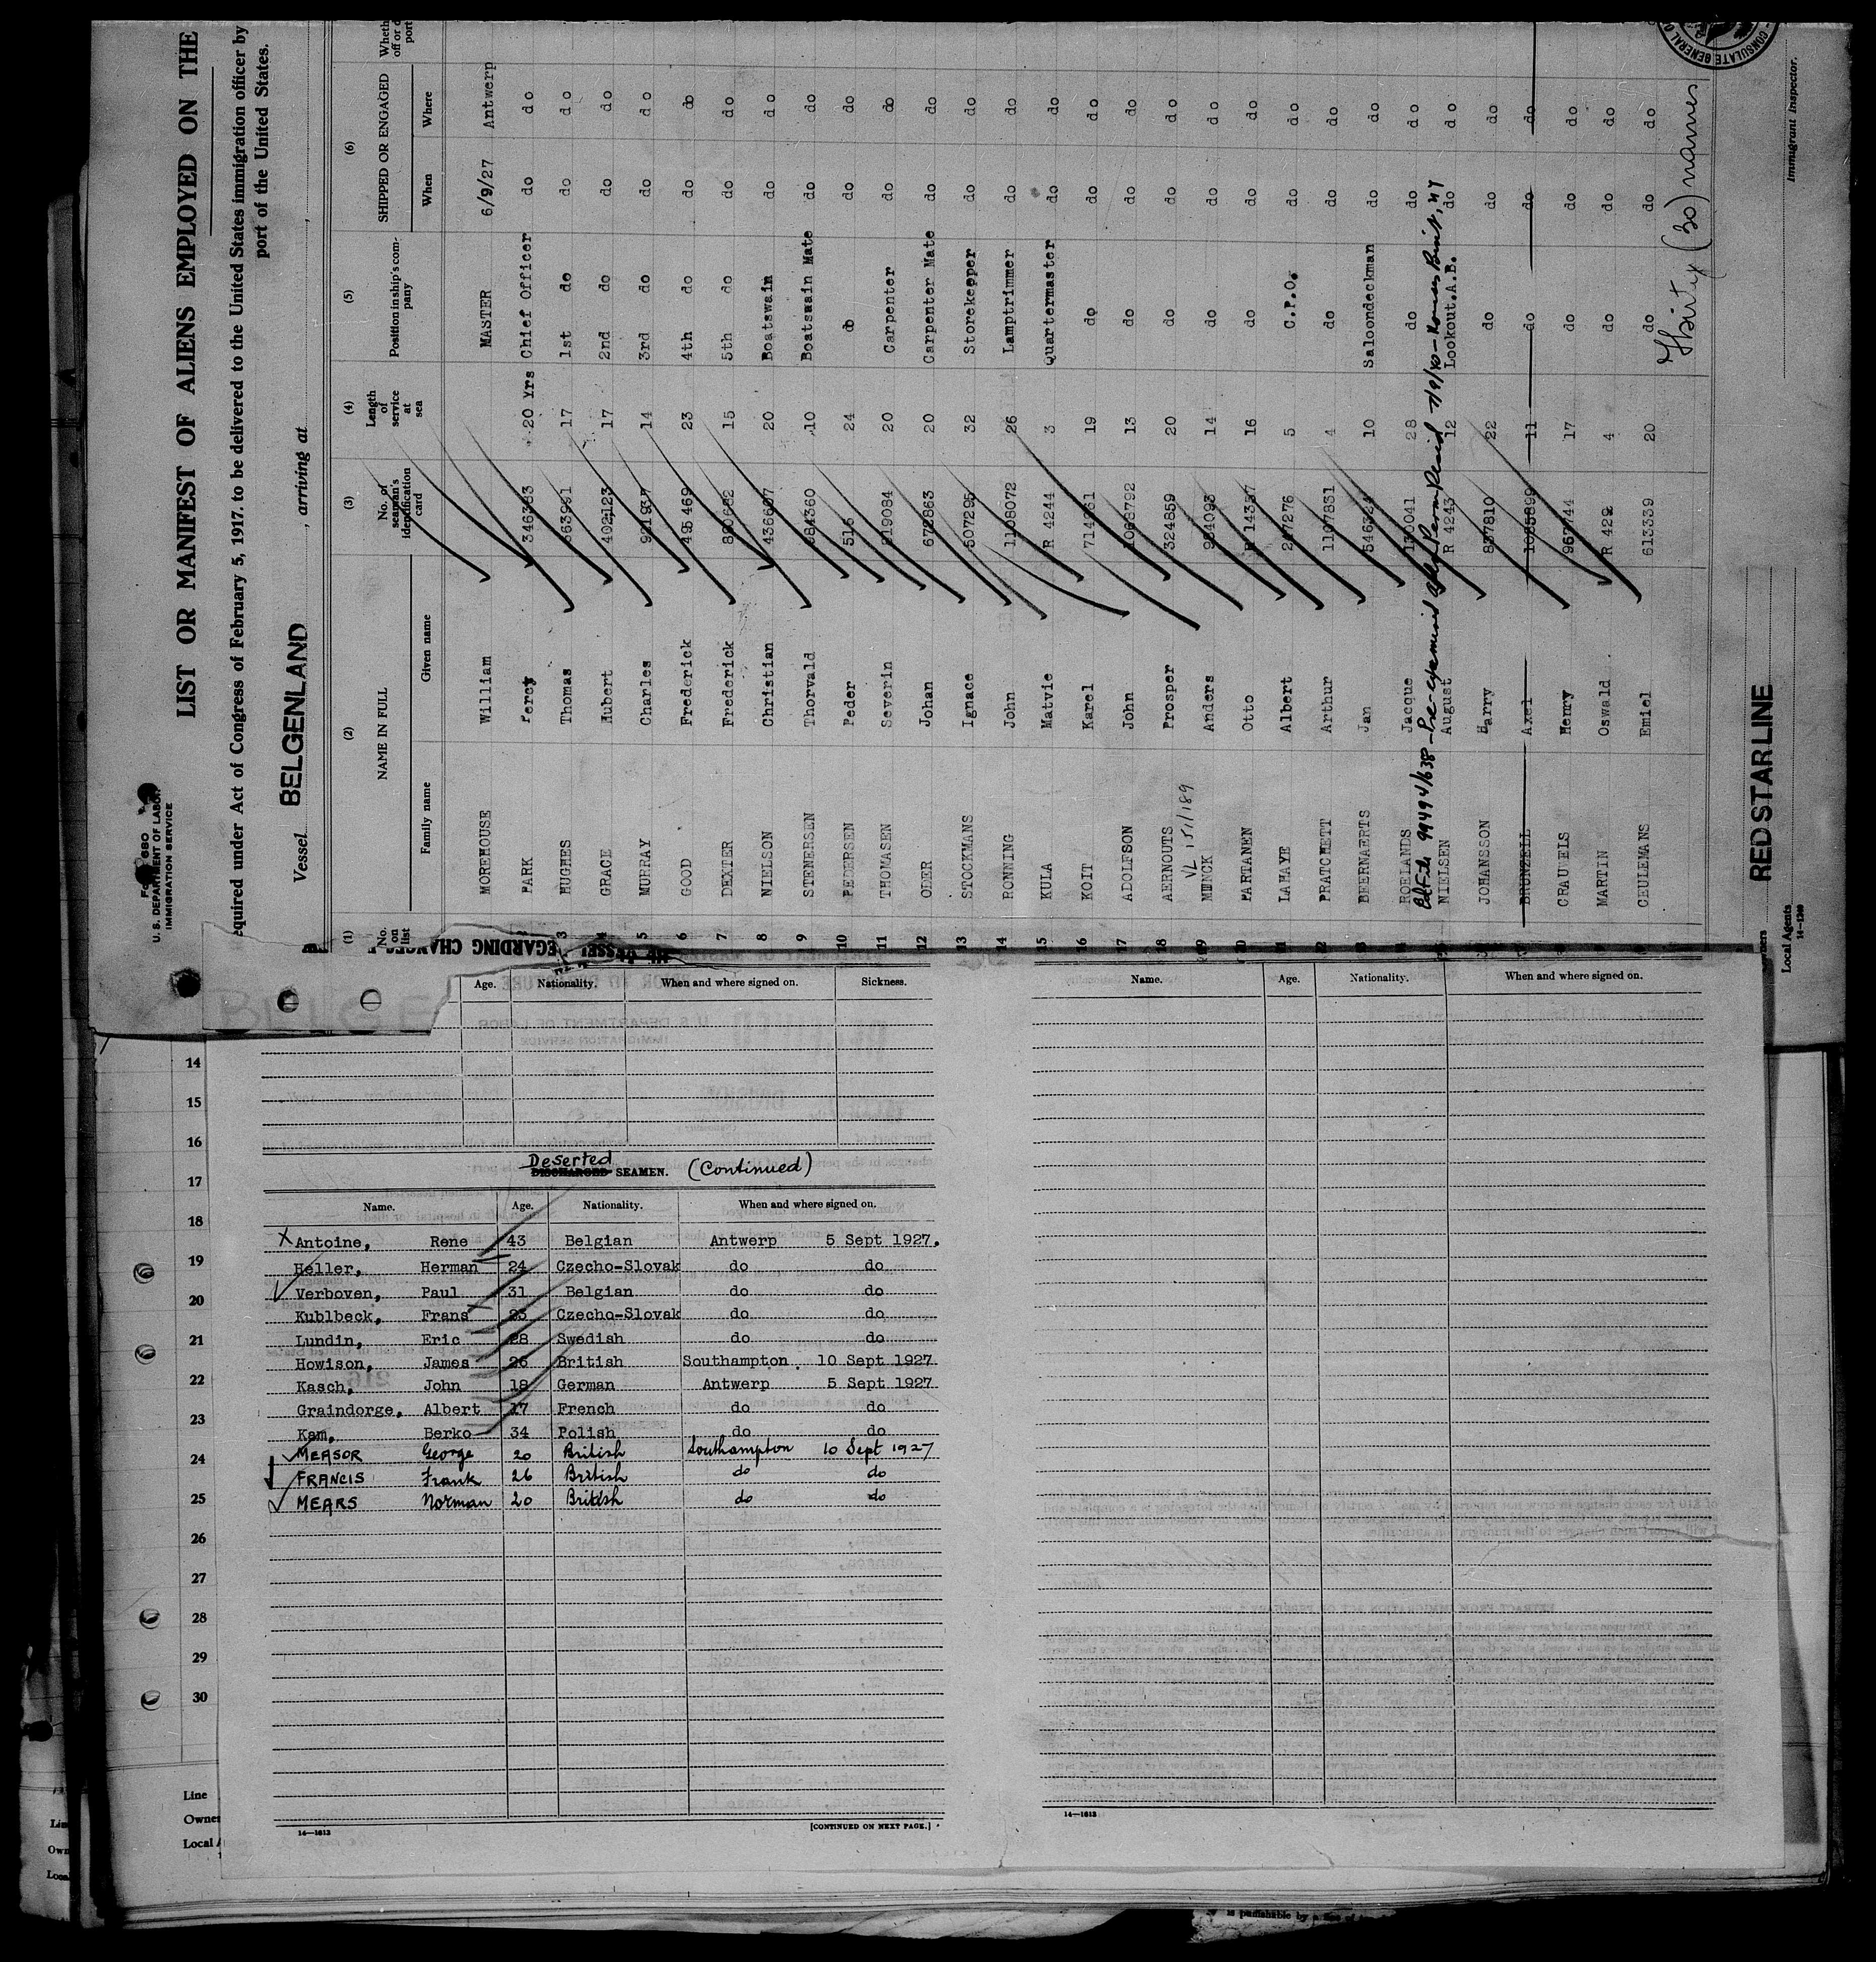 LIST OR MANIFEST OF ALIENS EMPLOYED ON THE
U. S. DEPARTMENT OF LABOR
IMMIGRATION SERVICE
equired under Act of Congress of February 5, 1917. to be delivered to the United States immigration officer by
port of the United States.
Vessel BELGENLAND, arriving at
(1) (2) (3) (4) (5) (6)
No. on list NAME IN FULL No. of seaman's identification card Length of service at sea Position in ship's company SHIPPED OR ENGAGED
Family name Given name When Where
MOREHOUSE William MASTER 6/9/27 Antwerp
PARK Percy 346383 20 yrs Chief Officer do do
3 HUGHES Thomas 17 1st do do do
4 GRACE Hubert 402123 17 2nd do do do
5 MURRAY Charles 14 3rd do do do
6 GOOD Frederick 495469 23 4th do do do
7 DEXTER Frederick 15 5th do do do
8 NIELSON Christian 436607 20 Boatswain do do
9 STENERSEN Thorvald 984360 10 Boatswain Mate do do
10 PEDERSEN Peder 24 do do do
11 THOMASEN Severin 919084 20 Carpenter do do
12 ODER Johan 672863 20 Carpenter Mate do do
13 STOCKMANS Ignace 507295 32 Storekeeper do do
14 RONNING John 1108072 26 Lamptrimmer do do
15 KULA Matvie R 4244 3 Quartermaster do do
16 KOIT Karel 19 do do do
17 ADOLFSON John 1068792 13 do do do
18 AERNOUTS Prosper 324859 20 do do do
VL 151/189
19 MUNCK Anders 984093 14 do do do
20 PARTANEN Otto 16 do do do
21 LAHAYE Albert 247276 5 C.P.O. do do
22 PRATCHETT Arthur 1107831 4 do do do
BEERNAERTS Jan 546324 10 Saloondeckman do do
ROELANDS Jacque 130041 28 do do do
99494/638 - Pre-examined
NIELSEN August R 4243 12 Lookout.A.B. do do
JOHANSSON Harry 837810 22 do do do
BRUNZELL Axel 1085899 11 do do do
CRAUWELS Henry 957744 17 do do do
MARTIN Oswald R 429 4 do do do
CEULEMANS Emiel 613339 20 do do do
Thirty (30) names
CONSULATE GENERAL O
RED STAR LINE
Local Agents
14-1240
Immigrant Inspector.
EGARDING CHANG
Age. Nationality. When and where signed on. Sickness.
Name. Age. Nationality. When and where signed on.
14
15
16
17
18
19
20
21
22
23
24
25
26
27
28
29
30
Deserted
DISCHARGED SEAMEN. (Continued)
Name. Age. Nationality. When and where signed on.
X Antoine, Rene 43 Belgian Antwerp 5 Sept 1927.
Heller, Herman 24 Czecho-Slovak do do
Verboven, Paul 31 Belgian do do
Kublbeck, Frans 23 Czecho-Slovak do do
Lundin, Eric 28 Swedish do do
Howison, James 26 British Southampton 10 Sept 1927
Kasch, John 18 German Antwerp 5 Sept 1927
Graindorge, Albert 17 French do do
Kam, Berko 34 Polish do do
MEASOR George 20 British Southampton 10 Sept 1927
FRANCIS Frank 26 British do do
MEARS Norman 20 British do do
14—1613
[CONTINUED ON NEXT PAGE.]
14—1613
Line
Owner
Local A
is punishable by a fine of